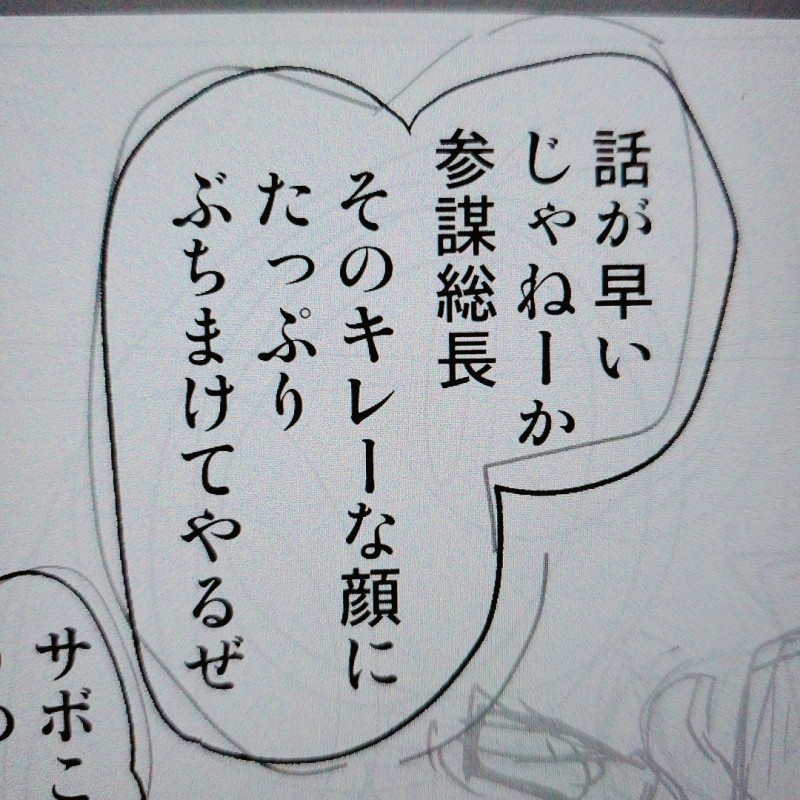 話が早い
じゃねーか
参謀総長
そのキレーな顔に
たっぷり
ぶちまけてやるぜ
サボこ